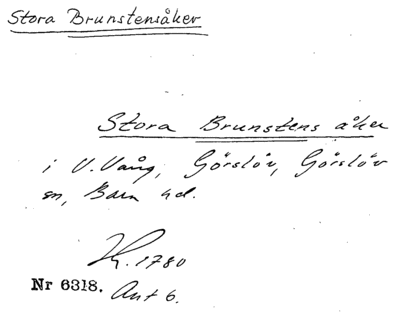 Stora Brunstensåker
Stora Brunstens åker
i V. Vång, Görslöv, Görslöv
sn, Bara hd.
1780
Nr 6318. Ant 6.